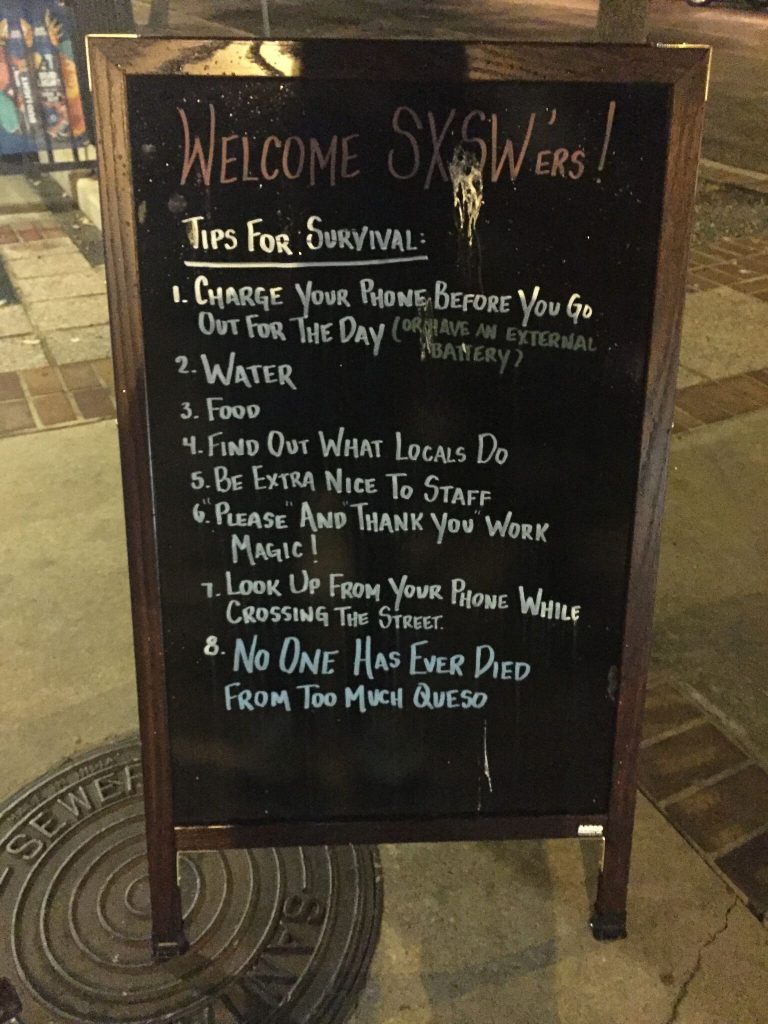 WELCOME SXSW'ERS!
TIPS FOR SURVIVAL:
1. CHARGE YOUR PHONE BEFORE YOU GO
OUT FOR THE DAY (OR HAVE AN EXTERNAL
BATTERY?
2. WATER
3. FOOD
4. FIND OUT WHAT LOCALS DO
5. BE EXTRA NICE TO STAFF
6. "PLEASE" AND "THANK YOU" WORK
MAGIC!
7. LOOK UP FROM YOUR PHONE WHILE
CROSSING THE STREET.
8. NO ONE HAS EVER DIED
FROM TOO MUCH QUESO
SEWER